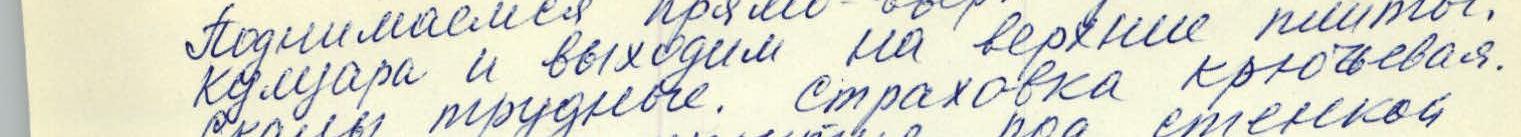 Поднимаемся прямо-
кулуара и выходим на верхние плиты.
Скалы трудные. Страховка крючьевая.
под стенкой